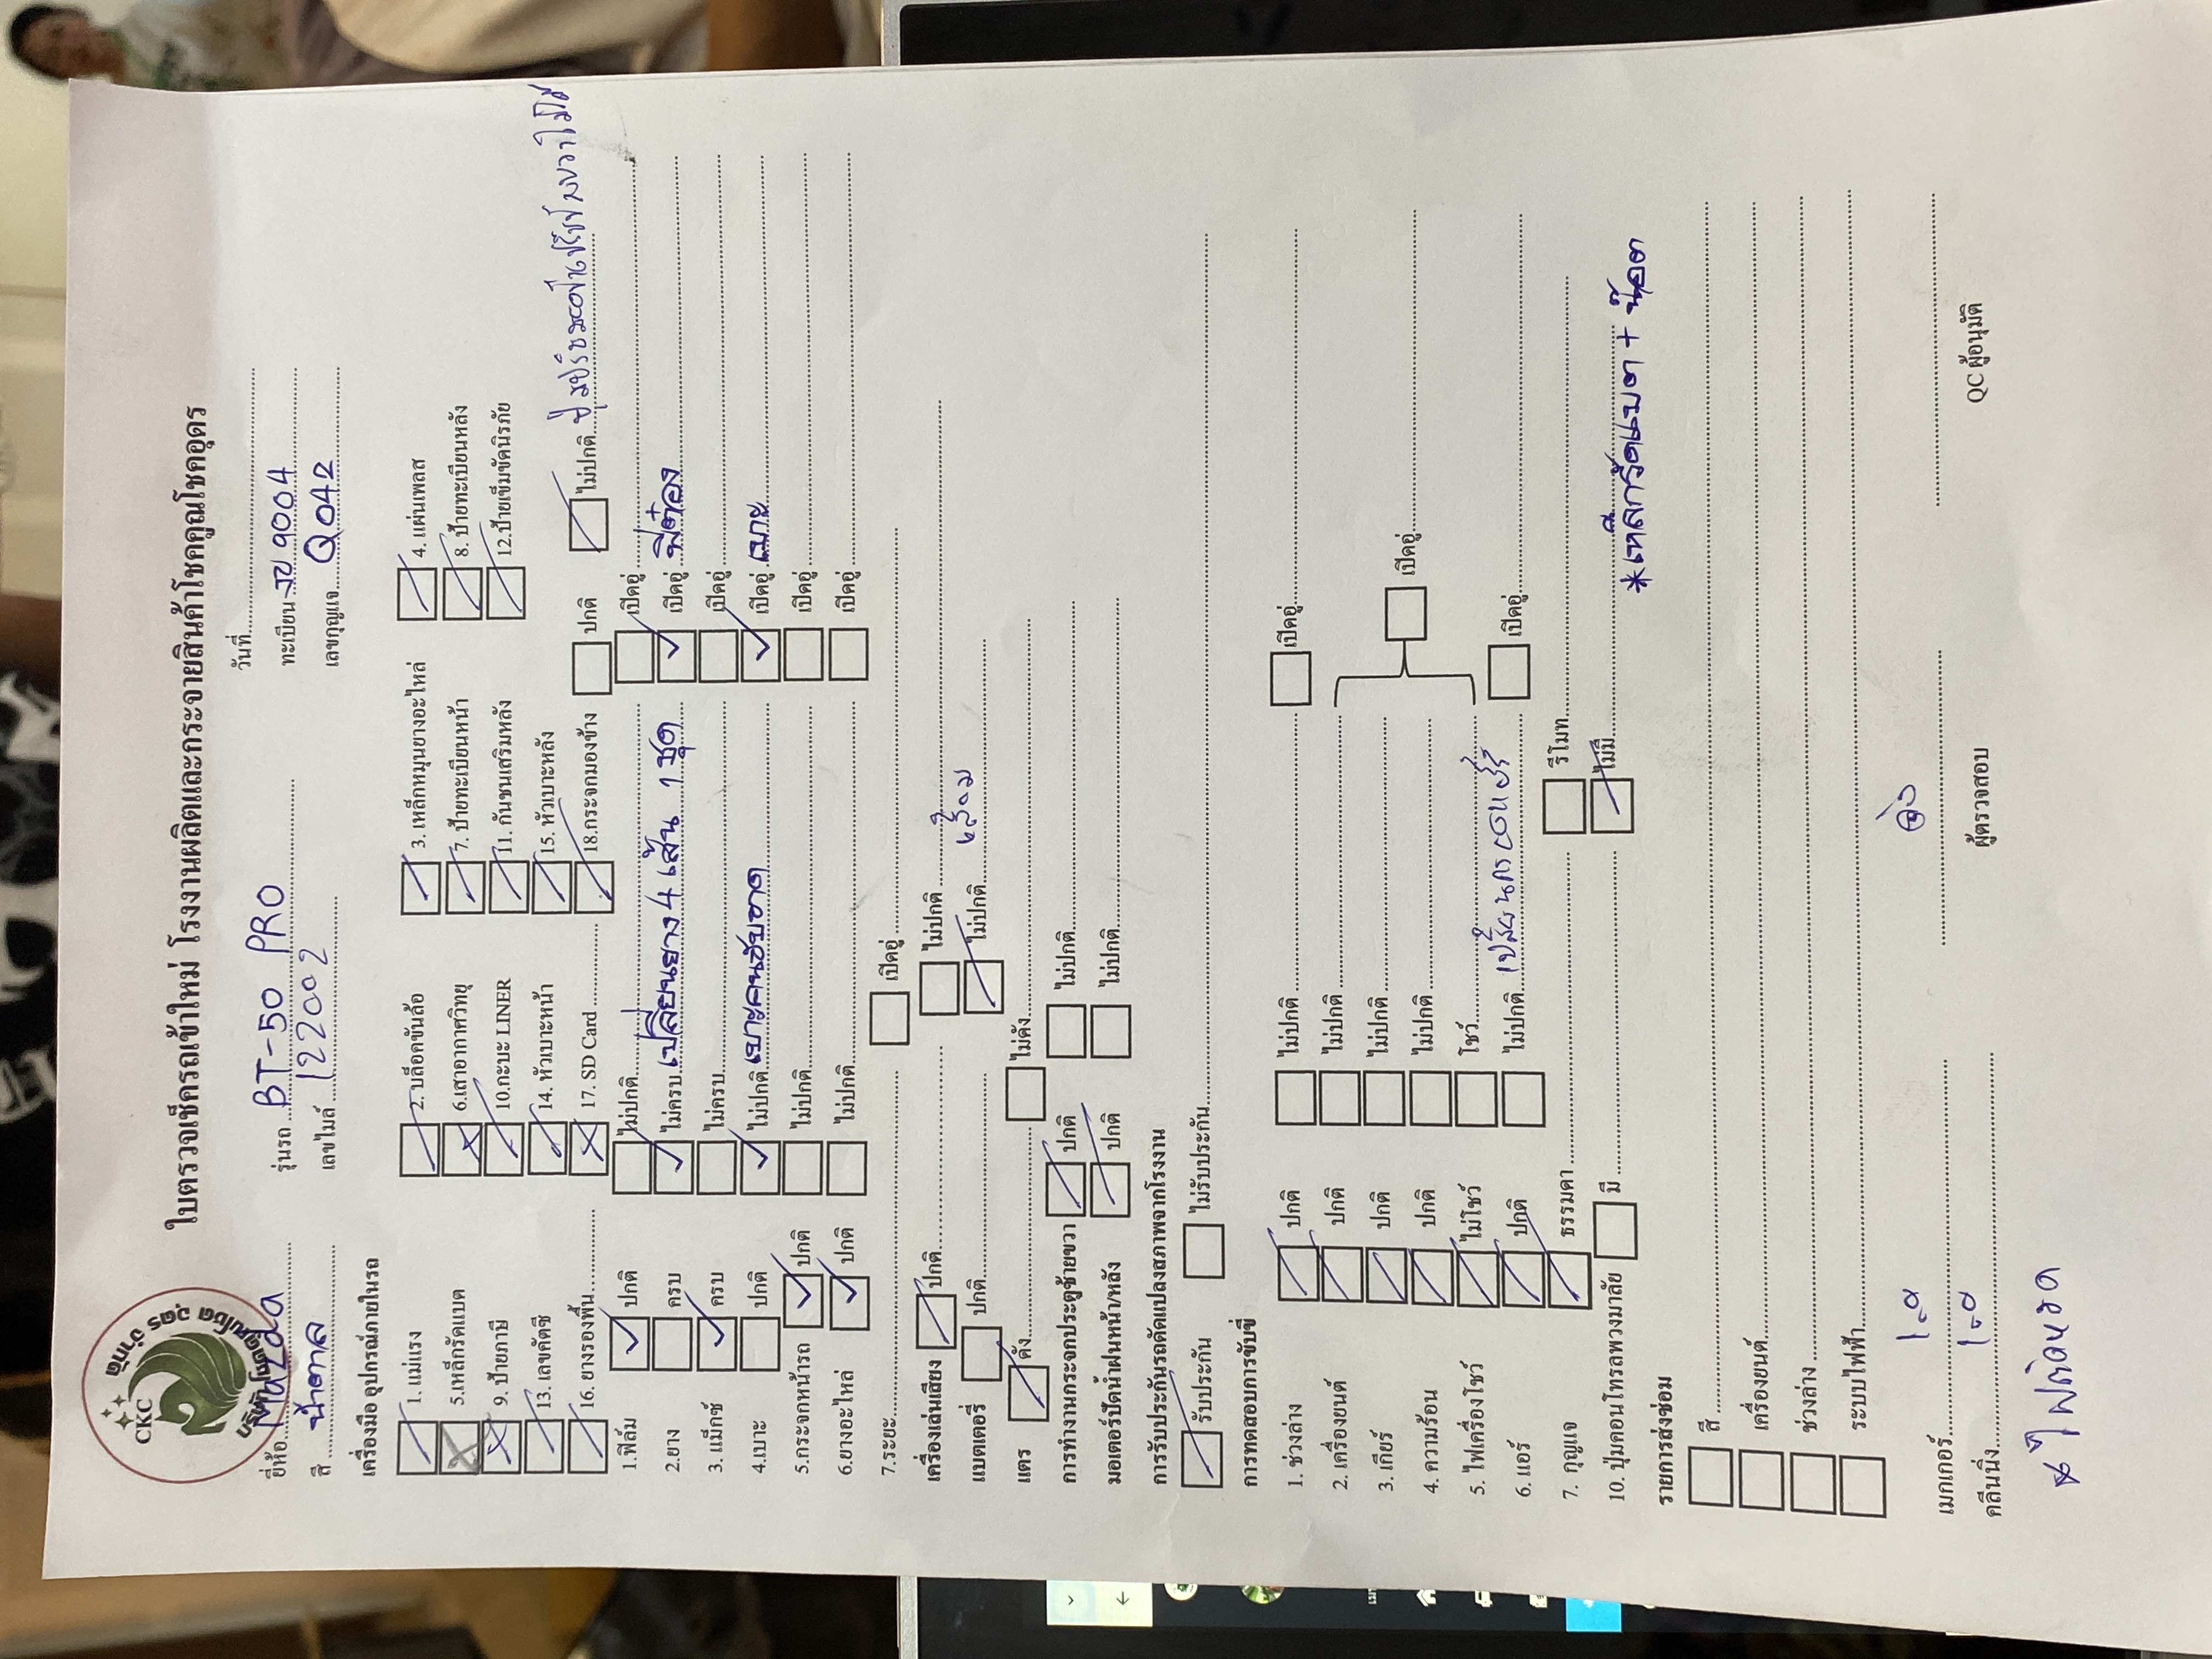 CKC
ใบตรวจเช็ครถเข้าใหม่ โรงงานผลิตและกระจายสินค้าโชคคูณโชคอุดร
วันที่
ยี่ห้อ Mazda รุ่นรถ BT-50 PRO ทะเบียน 9004
สี น้ำตาล เลขไมล์ 122002 เลขกุญแจ Q042
เครื่องมือ อุปกรณ์ภายในรถ
1. แม่แรง 2. บล็อคขันล้อ 3. เหล็กหมุนยางอะไหล่ 4. แผ่นเพลส
5.เหล็กรัดแบต 6.เสาอากาศวิทยุ 7. ป้ายทะเบียนหน้า 8. ป้ายทะเบียนหลัง
9. ป้ายภาษี 10.กะบะ LINER 11. กันชนเสริมหลัง 12.ป้ายเข็มขัดนิรภัย
13. เลขคัตซี 14. หัวเบาะหน้า 15. หัวเบาะหลัง
16. ยางรองพื้น 17. SD Card 18.กระจกมองข้าง ปกติ ไม่ปกติ
1.ฟิล์ม ปกติ ไม่ปกติ เปิดอู่
2.ยาง ครบ ไม่ครบ เปลี่ยนยาง 4 เส้น 1 ชุด เปิดอู่ พี่ต๋อง
3. แม็กซ์ ครบ ไม่ครบ เปิดอู่
4.เบาะ ปกติ ไม่ปกติ เบาะคนขับขาด เปิดอู่ เบาะ
5.กระจกหน้ารถ ปกติ ไม่ปกติ เปิดอู่
6.ยางอะไหล่ ปกติ ไม่ปกติ เปิดอู่
7.ระยะ เปิดอู่
เครื่องเล่นเสียง ปกติ ไม่ปกติ
แบตเตอรี่ ปกติ ไม่ปกติ เสื่อม
แตร ดัง ไม่ดัง
การทำงานกระจกประตูซ้ายขวา ปกติ ไม่ปกติ
มอเตอร์ปัดน้ำฝนหน้า/หลัง ปกติ ไม่ปกติ
การรับประกันรถดัดแปลงสภาพจากโรงงาน
รับประกัน ไม่รับประกัน
การทดสอบการขับขี่
1. ช่วงล่าง ปกติ ไม่ปกติ เปิดอู่
2. เครื่องยนต์ ปกติ ไม่ปกติ
3. เกียร์ ปกติ ไม่ปกติ เปิดอู่
4. ความร้อน ปกติ ไม่ปกติ
5. ไฟเครื่องโชว์ ไม่โชว์ โชว์
6. แอร์ ปกติ ไม่ปกติ เปิดอู่
7. กุญแจ ธรรมดา รีโมท
10. ปุ่มคอนโทรลพวงมาลัย มี ไม่มี
รายการส่งซ่อม *เหล็กรัดแบต + น๊อต
สี
เครื่องยนต์
ช่วงล่าง
ระบบไฟฟ้า
เมกเกอร์
คลีนนิ่ง ผู้ตรวจสอบ QC ผู้อนุมัติ